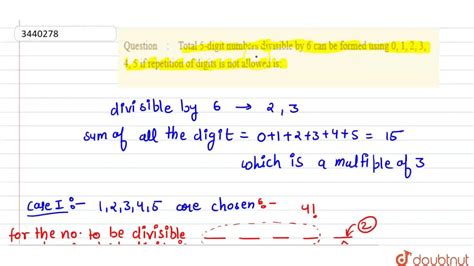 3440278
Question : Total 5-digit numbers divisible by 6 can be formed using 0, 1, 2, 3,
4, 5 if repetition of digits is not allowed is:
divisible by 6 → 2, 3
sum of all the digit = 0+1+2+3+4+5 = 15
which is a multiple of 3
Case I :- 1,2,3,4,5 are chosen :- 4!
for the no. to be divisible 2
doubtnut